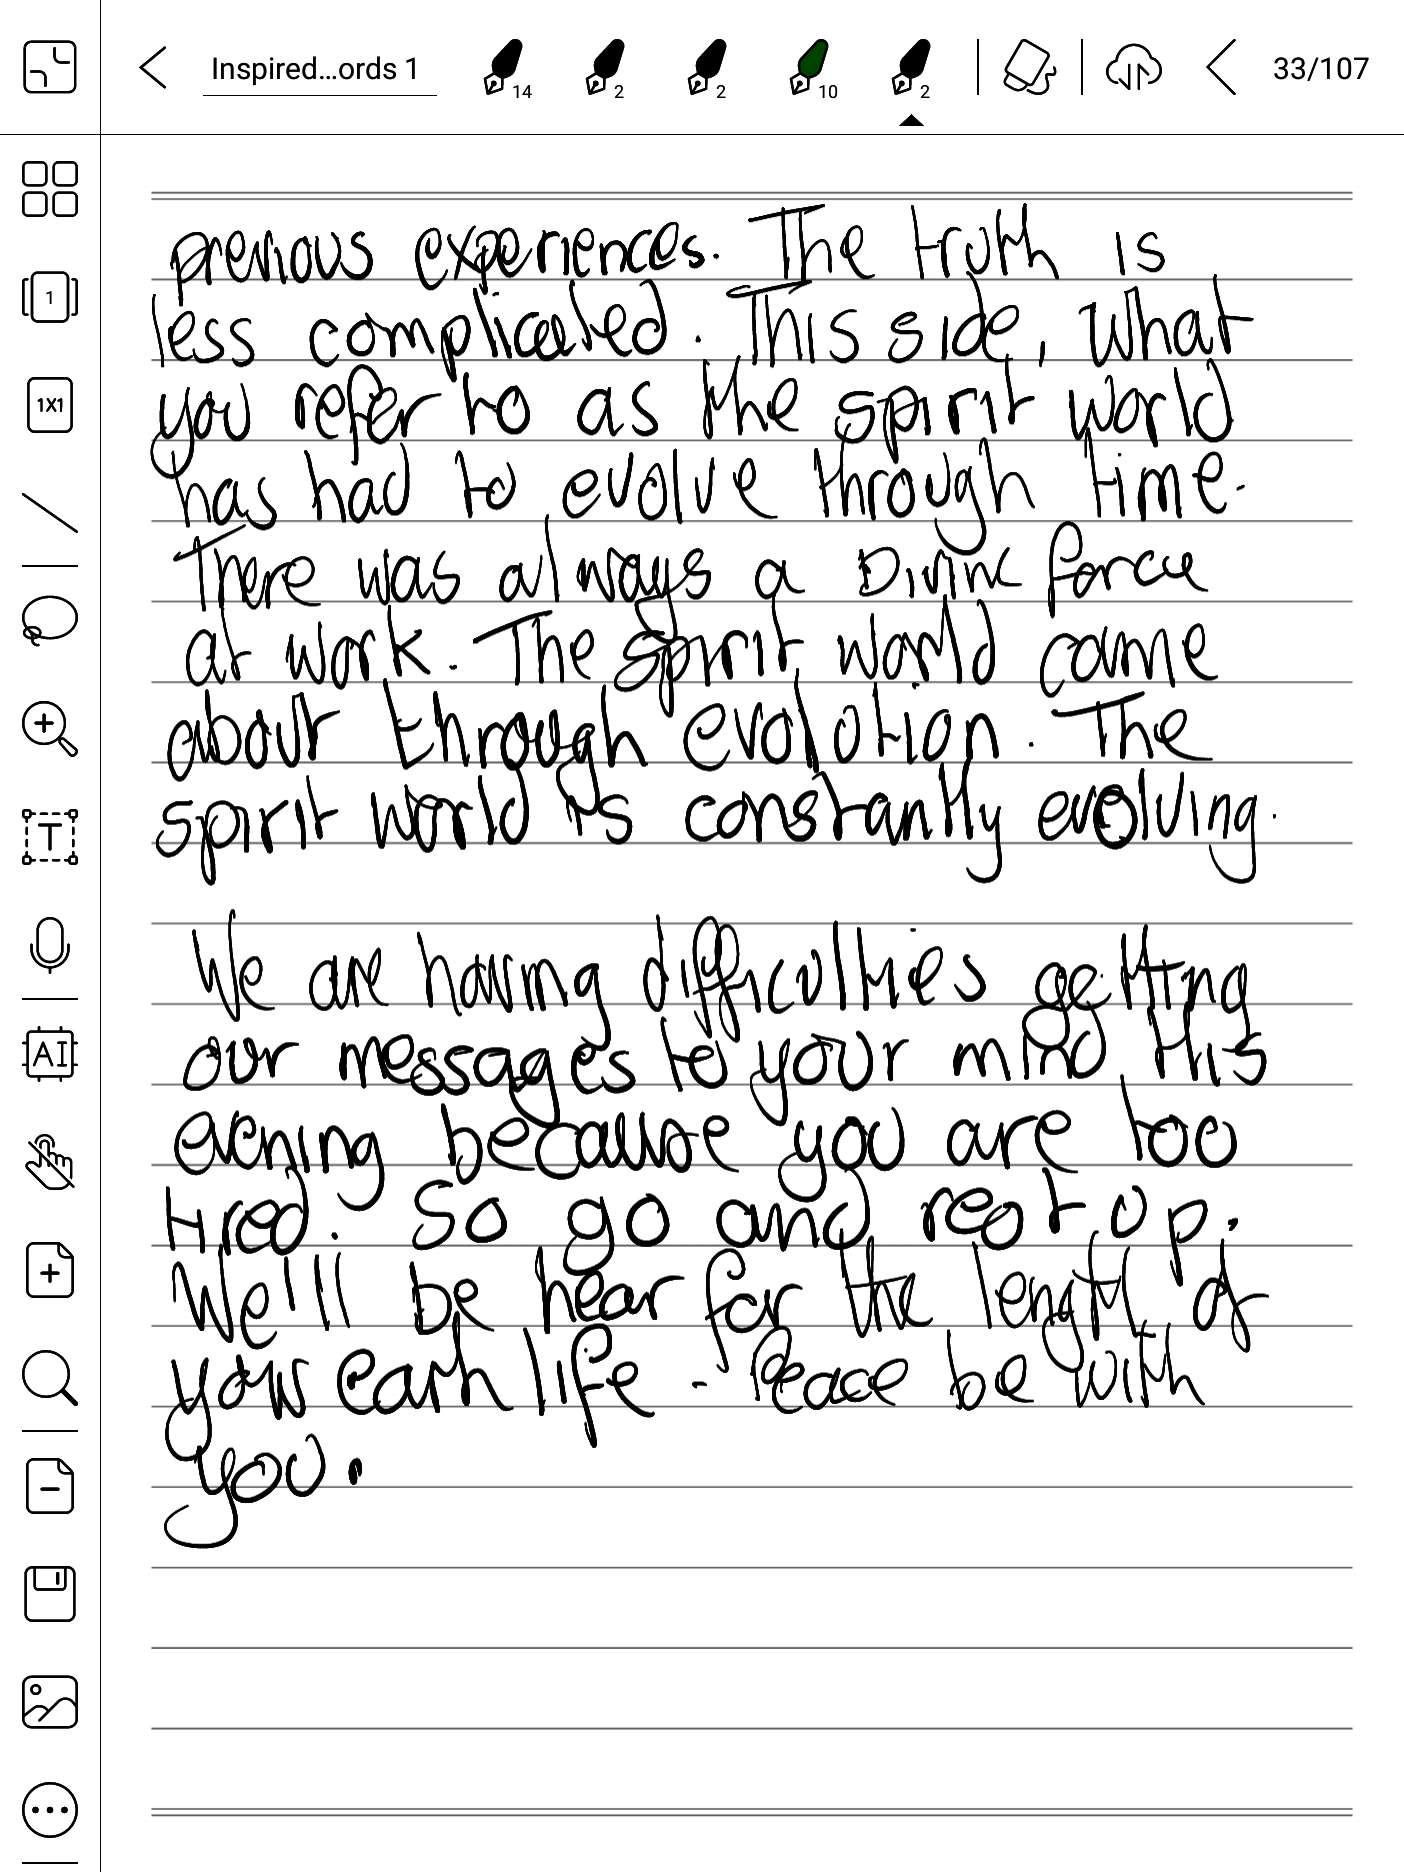 Inspired...ords 1
14
2
2
10
2
33/107
1
1X1
T
AI
previous experiences. The truth is
less complicated. This side, what
you refer to as the spirit world
has had to evolve through time.
There was always a Divine force
at work. The spirit world came
about through evolution. The
spirit world is constantly evolving.
We are having difficulties getting
our messages to your mind this
evening because you are too
tired. So go and rest up.
We'll be hear for the length of
your earh life - Peace be with
you.